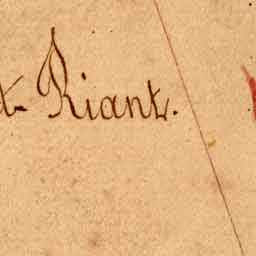 t Riantz.